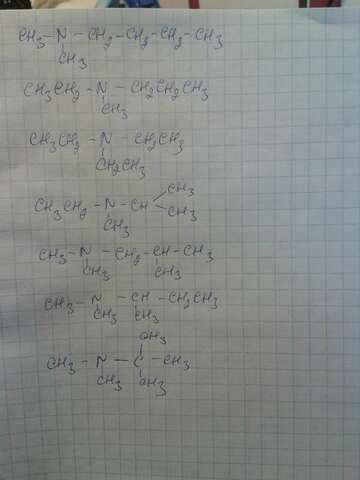 CH₃ - N - CH₂ - CH₂ - CH₂ - CH₃
CH₃
CH₃CH₂ - N - CH₂CH₂CH₃
CH₃
CH₃CH₂ - N - CH₂CH₃
CH₂CH₃
CH₃
CH₃CH₂ - N - CH
CH₃
CH₃
CH₃ - N - CH₂ - CH - CH₃
CH₃ CH₃
CH₃ - N - CH - CH₂CH₃
CH₃ CH₃
CH₃
CH₃ - N - C - CH₃
CH₃ CH₃